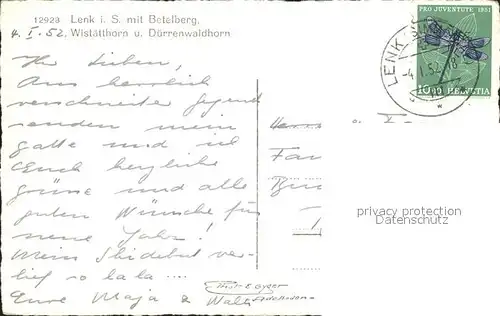 12923 Lenk i. S. mit Betelberg,
Wistätthorn u. Dürrenwaldhorn
4. I. 52.
PRO JUVENTUTE 1951
LENK
-4. I. 52. 18
10+10 HELVETIA
Ihr Lieben,
Aus herrlich
verschneiter Gegend
senden mein
Gatte und ich
Euch herzliche
Grüsse und alle
guten Wünsche für
neue Jahr!
Mein Skidebut ver-
lief so la la ....
Eure Maja & Walti
Phot. E. Gyger
Adelboden
Fam
privacy protection
Datenschutz